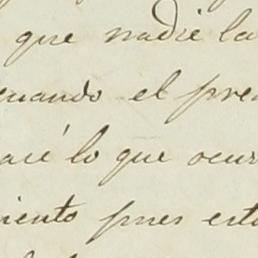 que nadie la
cuando el pre
acé lo que ocur
iento pues esta